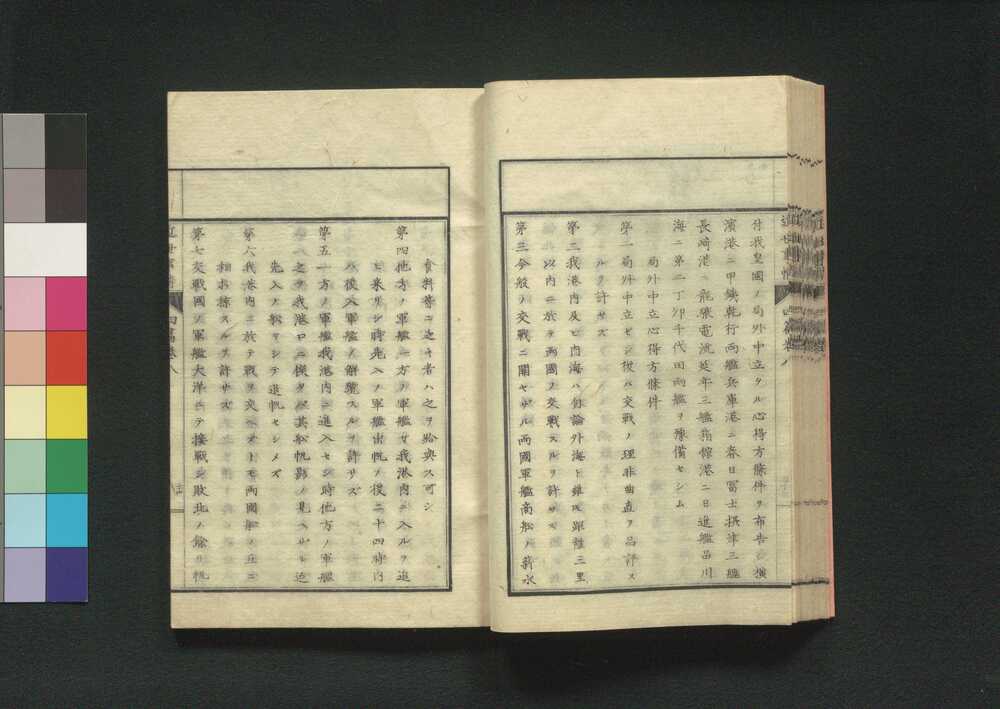 付我皇國ノ局外中立タル心得方條件ヲ布告シ横
濱港ニ甲鉄乾行両艦兵庫港ニ春日冨士摂津三艦
長崎港ニ龍驤電流延年三艦箱館港ニ日進艦品川
海ニ第二丁卯千代田両艦ヲ豫備セシム
局外中立心得方條件
第一局外中立セシ後ハ交戦ノ理非曲直ヲ品評ス
ルヲ許サズ
第二我港内及ヒ内海ハ勿論外海ト雖𪜈距陸三里
以内ニ於テ両國ノ交戦スルヲ許サズ
第三今般ノ交戦ニ關セザル両國軍艦商舩ハ薪水
食料等ニ乏キ者ハ之ヲ給與ス可シ
第四他方ノ軍艦一方ノ軍艦ヲ我港内ニ入ルヲ追
ヒ来リシ時先入ノ軍艦出帆ノ後二十四時内
ハ後入軍艦ノ解纜スルヲ許サズ
第五一方ノ軍艦我港内ニ進入セシ時他方ノ軍艦
之ヲ我港口ニ俟タバ其舩帆影ノ見ヘザル迄
先入ノ舩ヲシテ進帆セシメズ
第六我港内ニ於テ戦ヲ交ヘズトモ両國艦ノ互ニ
相掠スルヲ許サズ
第七交戦國ノ軍艦大洋ニテ接戦シ敗北ノ餘リ帆
四篇巻八